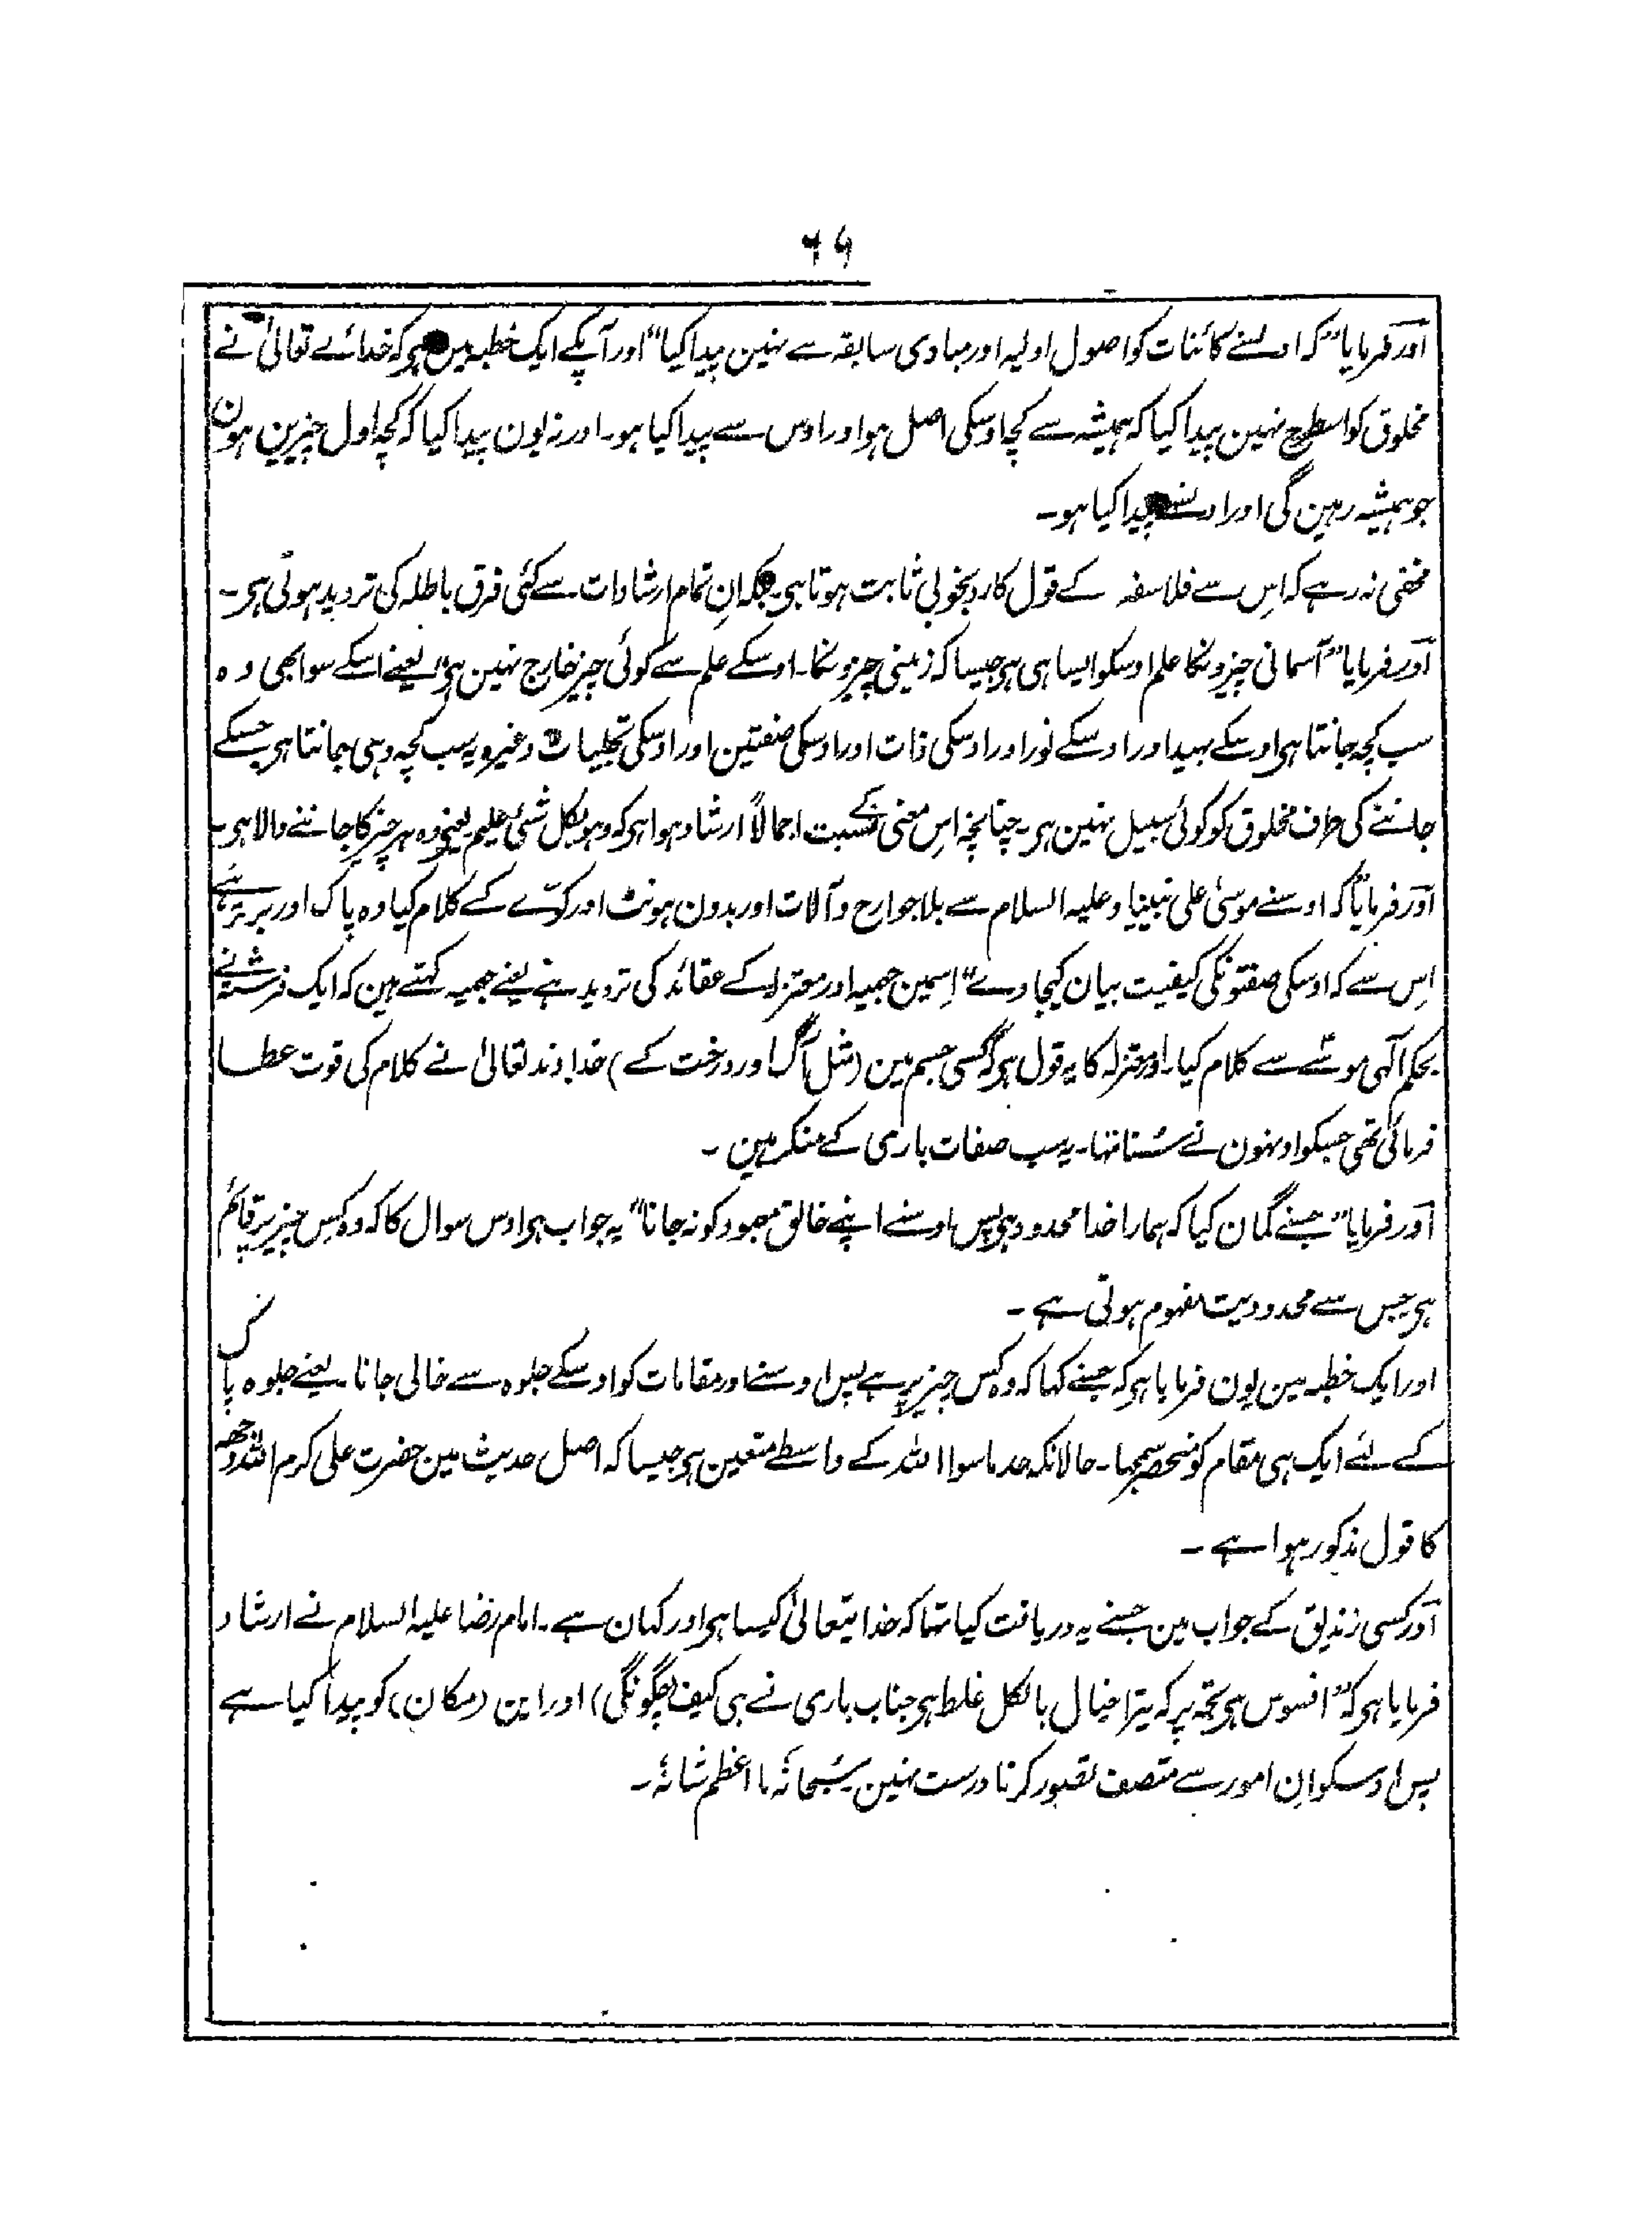 ۶۹
اور فرمایا "کہ اوسنے کائنات کو اصول اولیہ اور مبادی سابقہ سے نہین پیدا کیا" اور آپکے ایک خطبہ مین ہی کہ خدائے تعالیٰ نے
مخلوق کو اسطرح نہین پیدا کیا کہ ہمیشہ سے کچھ اوسکی اصل ہو اور اوس سے پیدا کیا ہو۔ اور نہ یون پیدا کیا کہ کچھ اول چیزین ہون
جو ہمیشہ رہین گی اور اونسے پیدا کیا ہو۔
مخفی نہ رہے کہ اِس سے فلاسفہ کے قول کا رد بخوبی ثابت ہوتا ہی۔ بلکہ اِن تمام ارشادات سے کئی فرق باطلہ کی تردید ہوتی ہی۔
اور فرمایا "آسمانی چیزونکا علم اوسکو ایسا ہی ہی جیسا کہ زمینی چیزونکا۔ اوسکے علم سے کوئی چیز خارج نہین ہی" یعنے اسکے سوا بھی وہ
سب کچھ جانتا ہی اوسکے بہید اور اوسکے نور اور اوسکی ذات اور اوسکی صفتین اور اوسکی تجلیات وغیرہ یہ سب کچھ وہی جانتا ہی جسکے
جاننے کی طرف مخلوق کو کوئی سبیل نہین ہی۔ چنانچہ اِس معنی کے نسبت اجمالاً ارشاد ہوا ہی کہ وہو بکل شیٔ علیم یعنے وہ ہر چیز کا جاننے والا ہی۔
اور فرمایا "کہ اوسنے موسیٰ علی نبینا و علیہ السلام سے بلا جوارح و آلات اور بدون ہونٹ اور کوّے کے کلام کیا وہ پاک اور برتر ہے
اِس سے کہ اوسکی صفتونکی کیفیت بیان کیجاوے" اِسمین جہمیہ اور معتزلہ کے عقائد کی تردید ہے یعنے جہمیہ کہتے ہین کہ ایک فرشتہ نے
بحکم آلٰہی موسٰے سے کلام کیا۔ اور معتزلہ کا یہ قول ہی کہ کسی جسم مین (مثل آگ اور درخت کے) خداوند تعالیٰ نے کلام کی قوت عطا
فرمائی تھی جسکو اونہون نے سُنا تہا۔ یہ سب صفات باری کے منکر ہین ۔
اور فرمایا "جسنے گمان کیا کہ ہمارا خدا محدود ہی پس اوسنے اپنے خالق معبود کو نہ جانا" یہ جواب ہی اوس سوال کا کہ وہ کس چیز پر قائم
ہی جس سے محدودیت مفہوم ہوتی ہے ۔
اور ایک خطبہ مین یون فرمایا ہی کہ جسنے کہا کہ وہ کس چیز پر ہے پس اوسنے اور مقامات کو اوسکے جلوہ سے خالی جانا۔ یعنے جلوہ پاک
کے لئے ایک ہی مقام کو منحصر سمجہا۔ حالانکہ حد ماسوا اللہ کے واسطے متعین ہی جیسا کہ اصل حدیث مین حضرت علی کرم اللہ وجہہ
کا قول مذکور ہوا ہے ۔
اور کسی زندیق کے جواب مین جسنے یہ دریافت کیا تہا کہ خدا یتعالیٰ کیسا ہی اور کہان ہے۔ امام رضا علیہ السلام نے ارشاد
فرمایا ہی کہ "افسوس ہی تجھ پر کہ تیرا خیال بالکل غلط ہی جناب باری نے ہی کیف (چگونگی) اور این (مکان) کو پیدا کیا ہے
پس اوسکو اِن امور سے متصف تصور کرنا درست نہین سُبحانَہٗ ما اعظم شانُہٗ۔